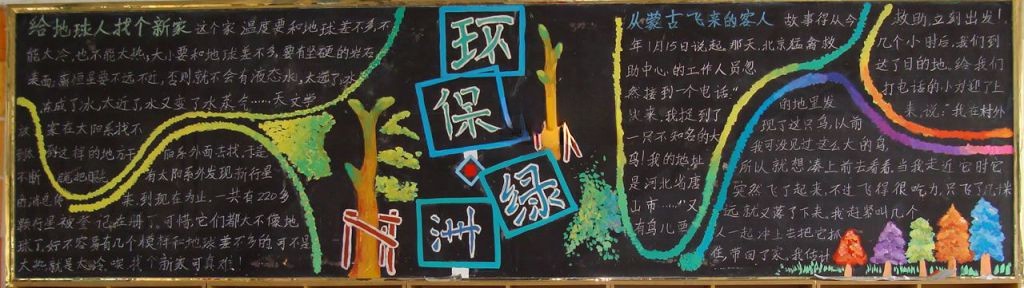 给地球人找个新家 这个家温度要和地球差不多不
能太冷,也不能太热,大小要和地球差不多,要有坚硬的岩石
表面,离恒星要不远不近,否则就不会有液态水,太远了水
冻成了冰,太近了水又变了水蒸气……天文学
家在太阳系找不
到这样的地方于
阳系外面去找,于是
不断
有太阳系外发现新行星
的消息传来,到现在为止,一共有220多
颗行星被登记在册了。可惜,它们都大不像地
球了,好不容易有几个模样和地球差不多的,可不是
太热就是太冷。唉,找个新家可真难!
环
保
绿
洲
从蒙古飞来的客人 故事得从今
年1月15日说起,那天,北京猛禽救
助中心的工作人员忽
然接到一个电话:“
快来,我捉到了
一只不知名的大
鸟!我的地址
是河北省唐
山市……”又
有鸟儿要
救助,立到出发!
几个小时后,我们到
达了目的地。给我们
打电话的小力迎了上
来,说:“我在村外
的地里发
现了这只鸟,以前
我可没见过这么大的鸟,
所以就想凑上前去看看。当我走近它时,它
突然飞了起来,不过飞得很吃力,只飞了几十米
远,就又落了下来。我赶紧叫几个
人一起冲上去把它抓
住,带回了家,我估计